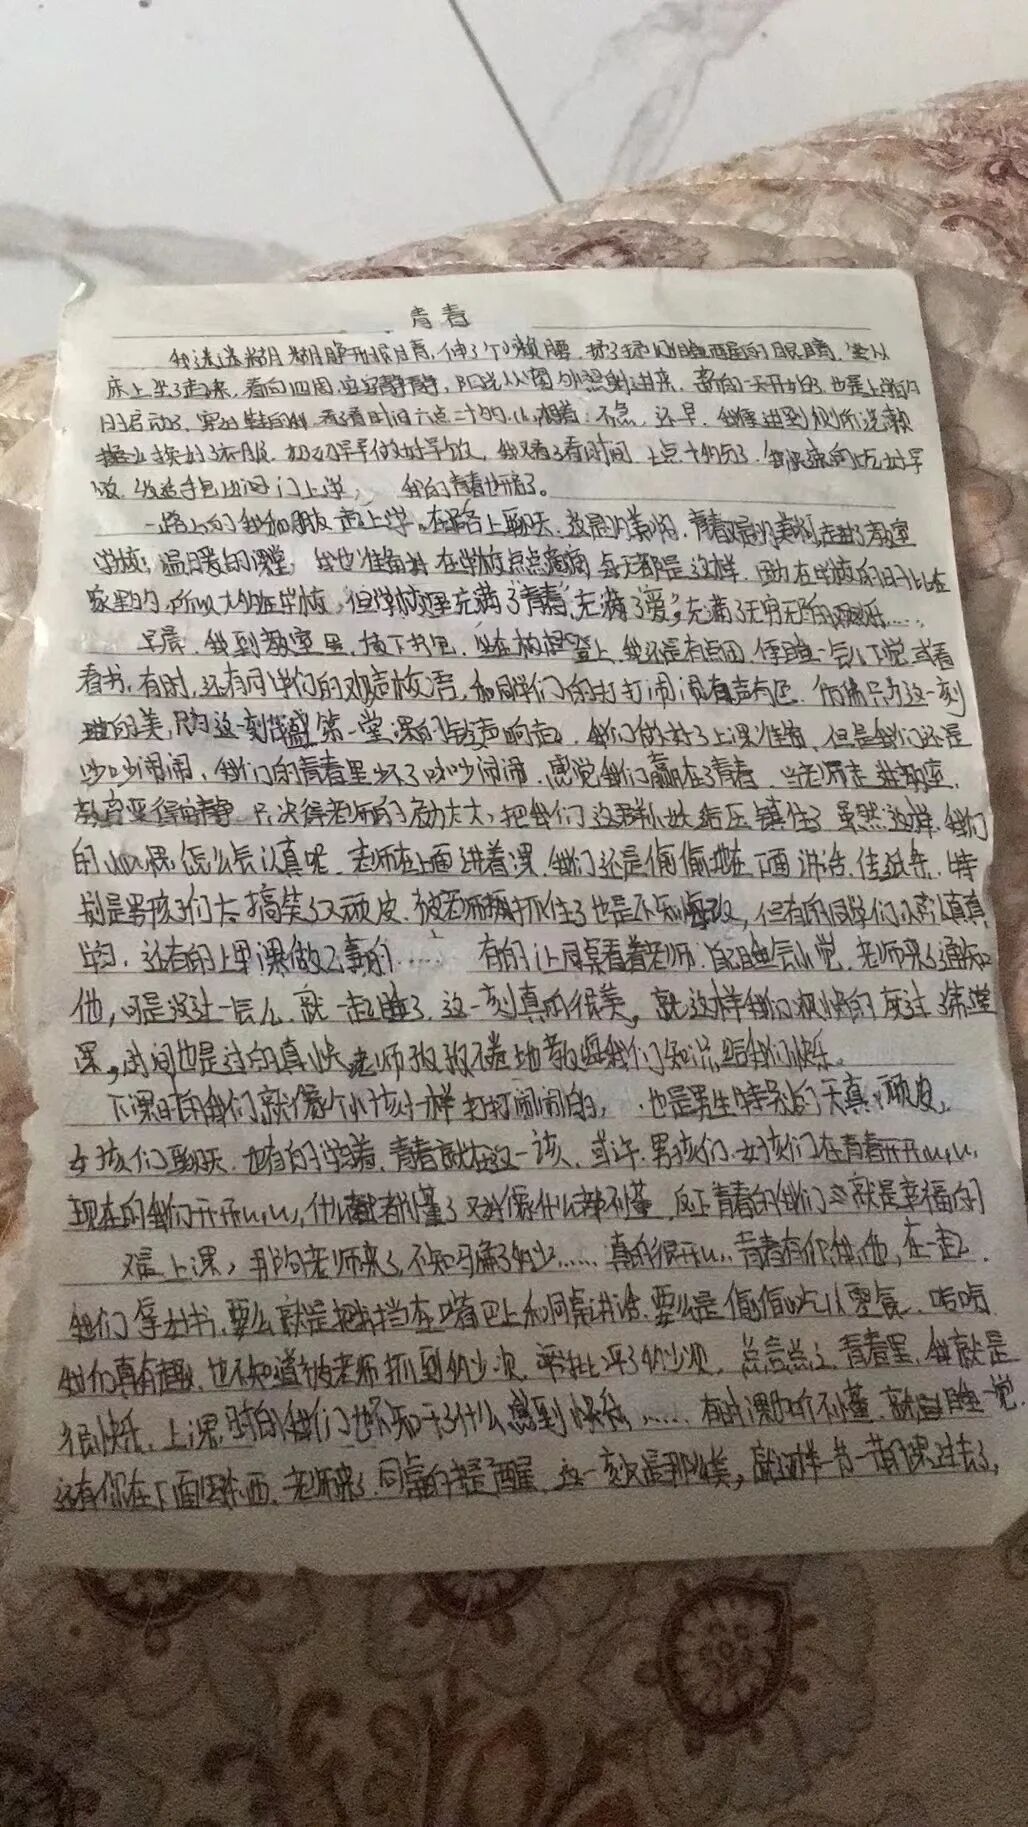 青春
我迷迷糊糊睁开眼睛,伸了个懒腰,揉了揉的眼睛,坐从
床上坐了起来,看向四周,安安静静,阳光从窗外照射进来,新的一天开始,也是上
启动了,穿好鞋看了看时间六点二十,想着:不急,还早,我慢进到厕所洗漱
换好了衣服,妈妈早早做好早饭,我又看了看时间,七点十,我快速的吃好早
饭,背书包出门上学,我的青春也开始了。
一路上的我和朋友一起上学,在路上聊天,这是美,青春是美,走进了教室
学校,温暖的课堂,我也准备好在学校点点滴滴,每天都是这样,因为在学校的日比在
家里的,所以大在学校,但学校里充满了青春,充满了爱,充满了无穷无尽的欢乐……
早晨,我到教室里,放下书包,坐在板凳上,我还是有点困,便睡一会儿觉,或看
看书,有时,还有同学们的欢声笑语,和同学们的打打闹闹有声有色,仿佛只为这一刻
的美,只为这一刻第一堂课的铃声响起,我们做好了上课准备,但是我们还是
吵吵闹闹,我们的青春里少不了吵吵闹闹,感觉我们赢在了青春,当老师走进教室,
教室变得安静,只觉得老师的威力太大,把我们这群小妖给压镇住了,虽然这样,我们
的小心思怎么会认真呢,老师在上面讲着课,我们还是偷偷地在下面讲话,传纸条,特
别是男孩子们太搞笑了又顽皮,被老师抓住了也是不知悔改,但有的同学们认认真真
学习,还有的上课做己事的……有的让同桌看着老师,自己睡会儿觉,老师来了通知
他,可是没过一会儿,就一起睡了,这一刻真的很美,就这样我们很快的度过了第一堂
课,时间也是过的真快,老师孜孜不倦地教导我们知识,给我们快乐。
下课时的我们就像个小孩子一样打打闹闹的,也是男生特别的天真、顽皮,
女孩们聊天,也有的学着,青春就在这一刻,或许,男孩们、女孩们在青春开开心心,
现在的我们开开心心,什么都懂了又好像什么都不懂,反正青春的我们就是幸福的
又是上课,那时老师来了,不知骂了多少……真的很开心,青春有你我他,在一起,
我们拿好书,要么就是把书挡在嘴巴上和同桌讲话,要么是偷偷吃零食,哈哈
我们真有趣,也不知道被老师抓到多少次,被批评了多少次,总言总之,青春里,我就是
很快乐,上课时的我们也不知干了什么感到快乐……有时课听不懂,就睡一觉,
还有你在下面吃东西,老师来了,同桌的提醒,这一刻又是那么美,就这样一节一节的课过去了,